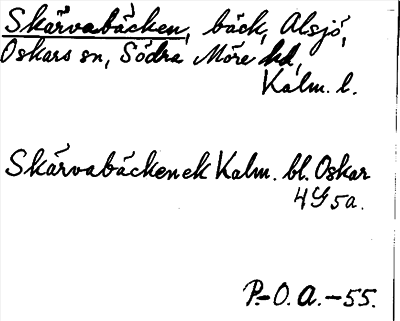 Skärvabäcken, bäck, Alsjö,
Oskars sn, Södra Möre hd,
Kalm. l.
Skärvabäcken ek Kalm. bl. Oskar
4G5a.
P.-O. A. -55.